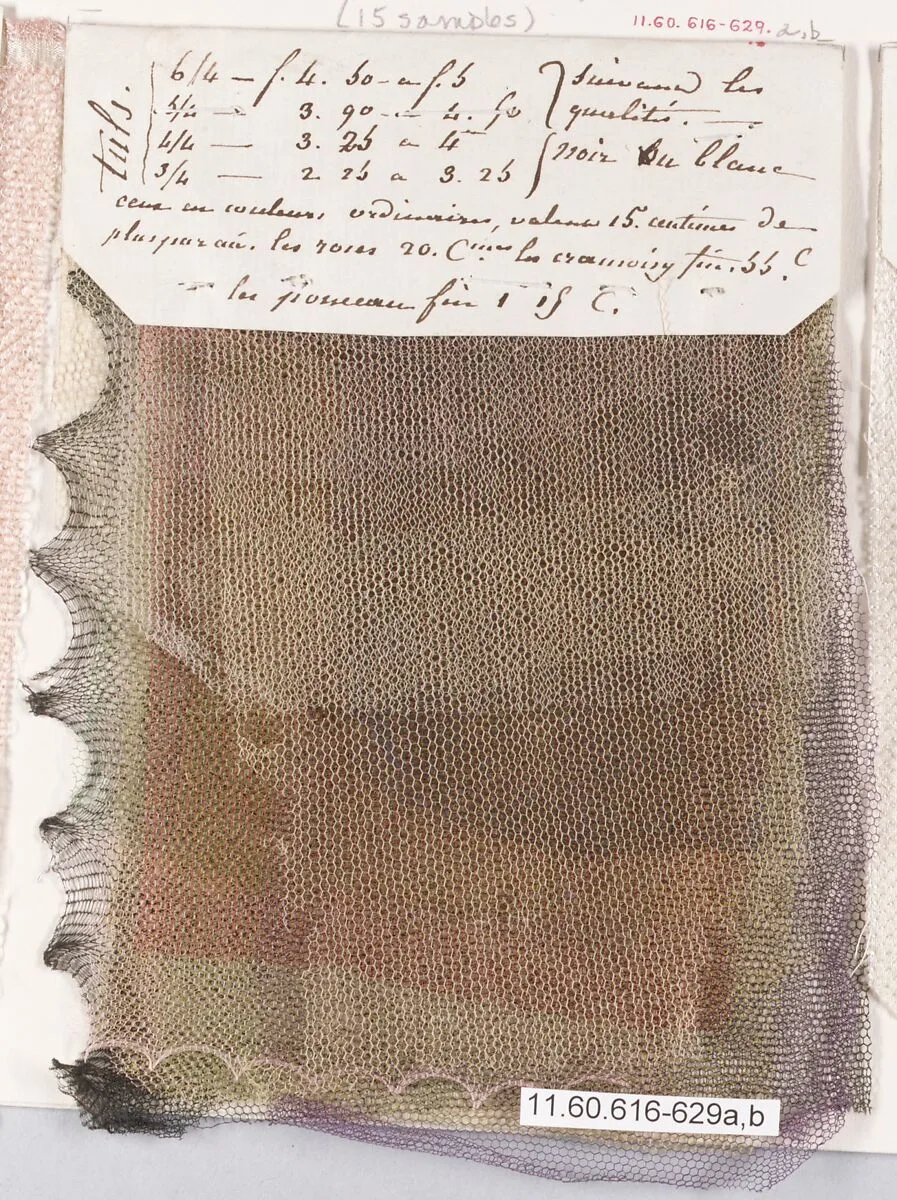 (15 samples)
11.60.616-629.a,b
tuls.
6/4 — f. 4. 50 a f. 5
5/4 — 3. 90 — 4. 50
4/4 — 3. 25 a 4
3/4 — 2 25 a 3. 25
suivand les
qualités. —
noir ou blanc
ceux en couleurs ordinaires, valent 15. centimes de
plus par au. les roses 20. C.mes les cramoisy fin. 55. C
les ponceau fin 1 15 C.
11.60.616-629a,b